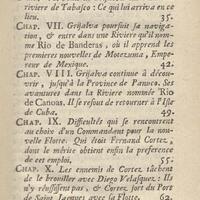 riviere de Tabasco : Ce qui lui arriva en ce
lieu. 35.
CHAP. VII. Grijalva poursuit sa naviga-
tion, & entre dans une Riviere qu'il nom-
me Rio de Banderas, où il apprend les
premieres nouvelles de Motezuma, Empe-
reur de Mexique. 42.
CHAP. VIII. Grijalva continue à décou-
vrir, jusqu'à la Province de Panuco. Ses
avantures dans la Riviere nommée Rio
de Canoas. Il se resout de retourner à l'Isle
de Cuba. 49.
CHAP. IX. Difficultés qui se rencontrent
au choix d'un Commandant pour la nou-
velle Flotte. Qui étoit Fernand Cortez,
dont le mérite obtient enfin la preference
de cet emploi. 55.
CHAP. X. Les ennemis de Cortez tâchent
de le brouiller avec Diego Velasquez : Ils
n'y réussissent pas, & Cortez sort du Port
de Saint Jacques avec sa Flotte. 62.